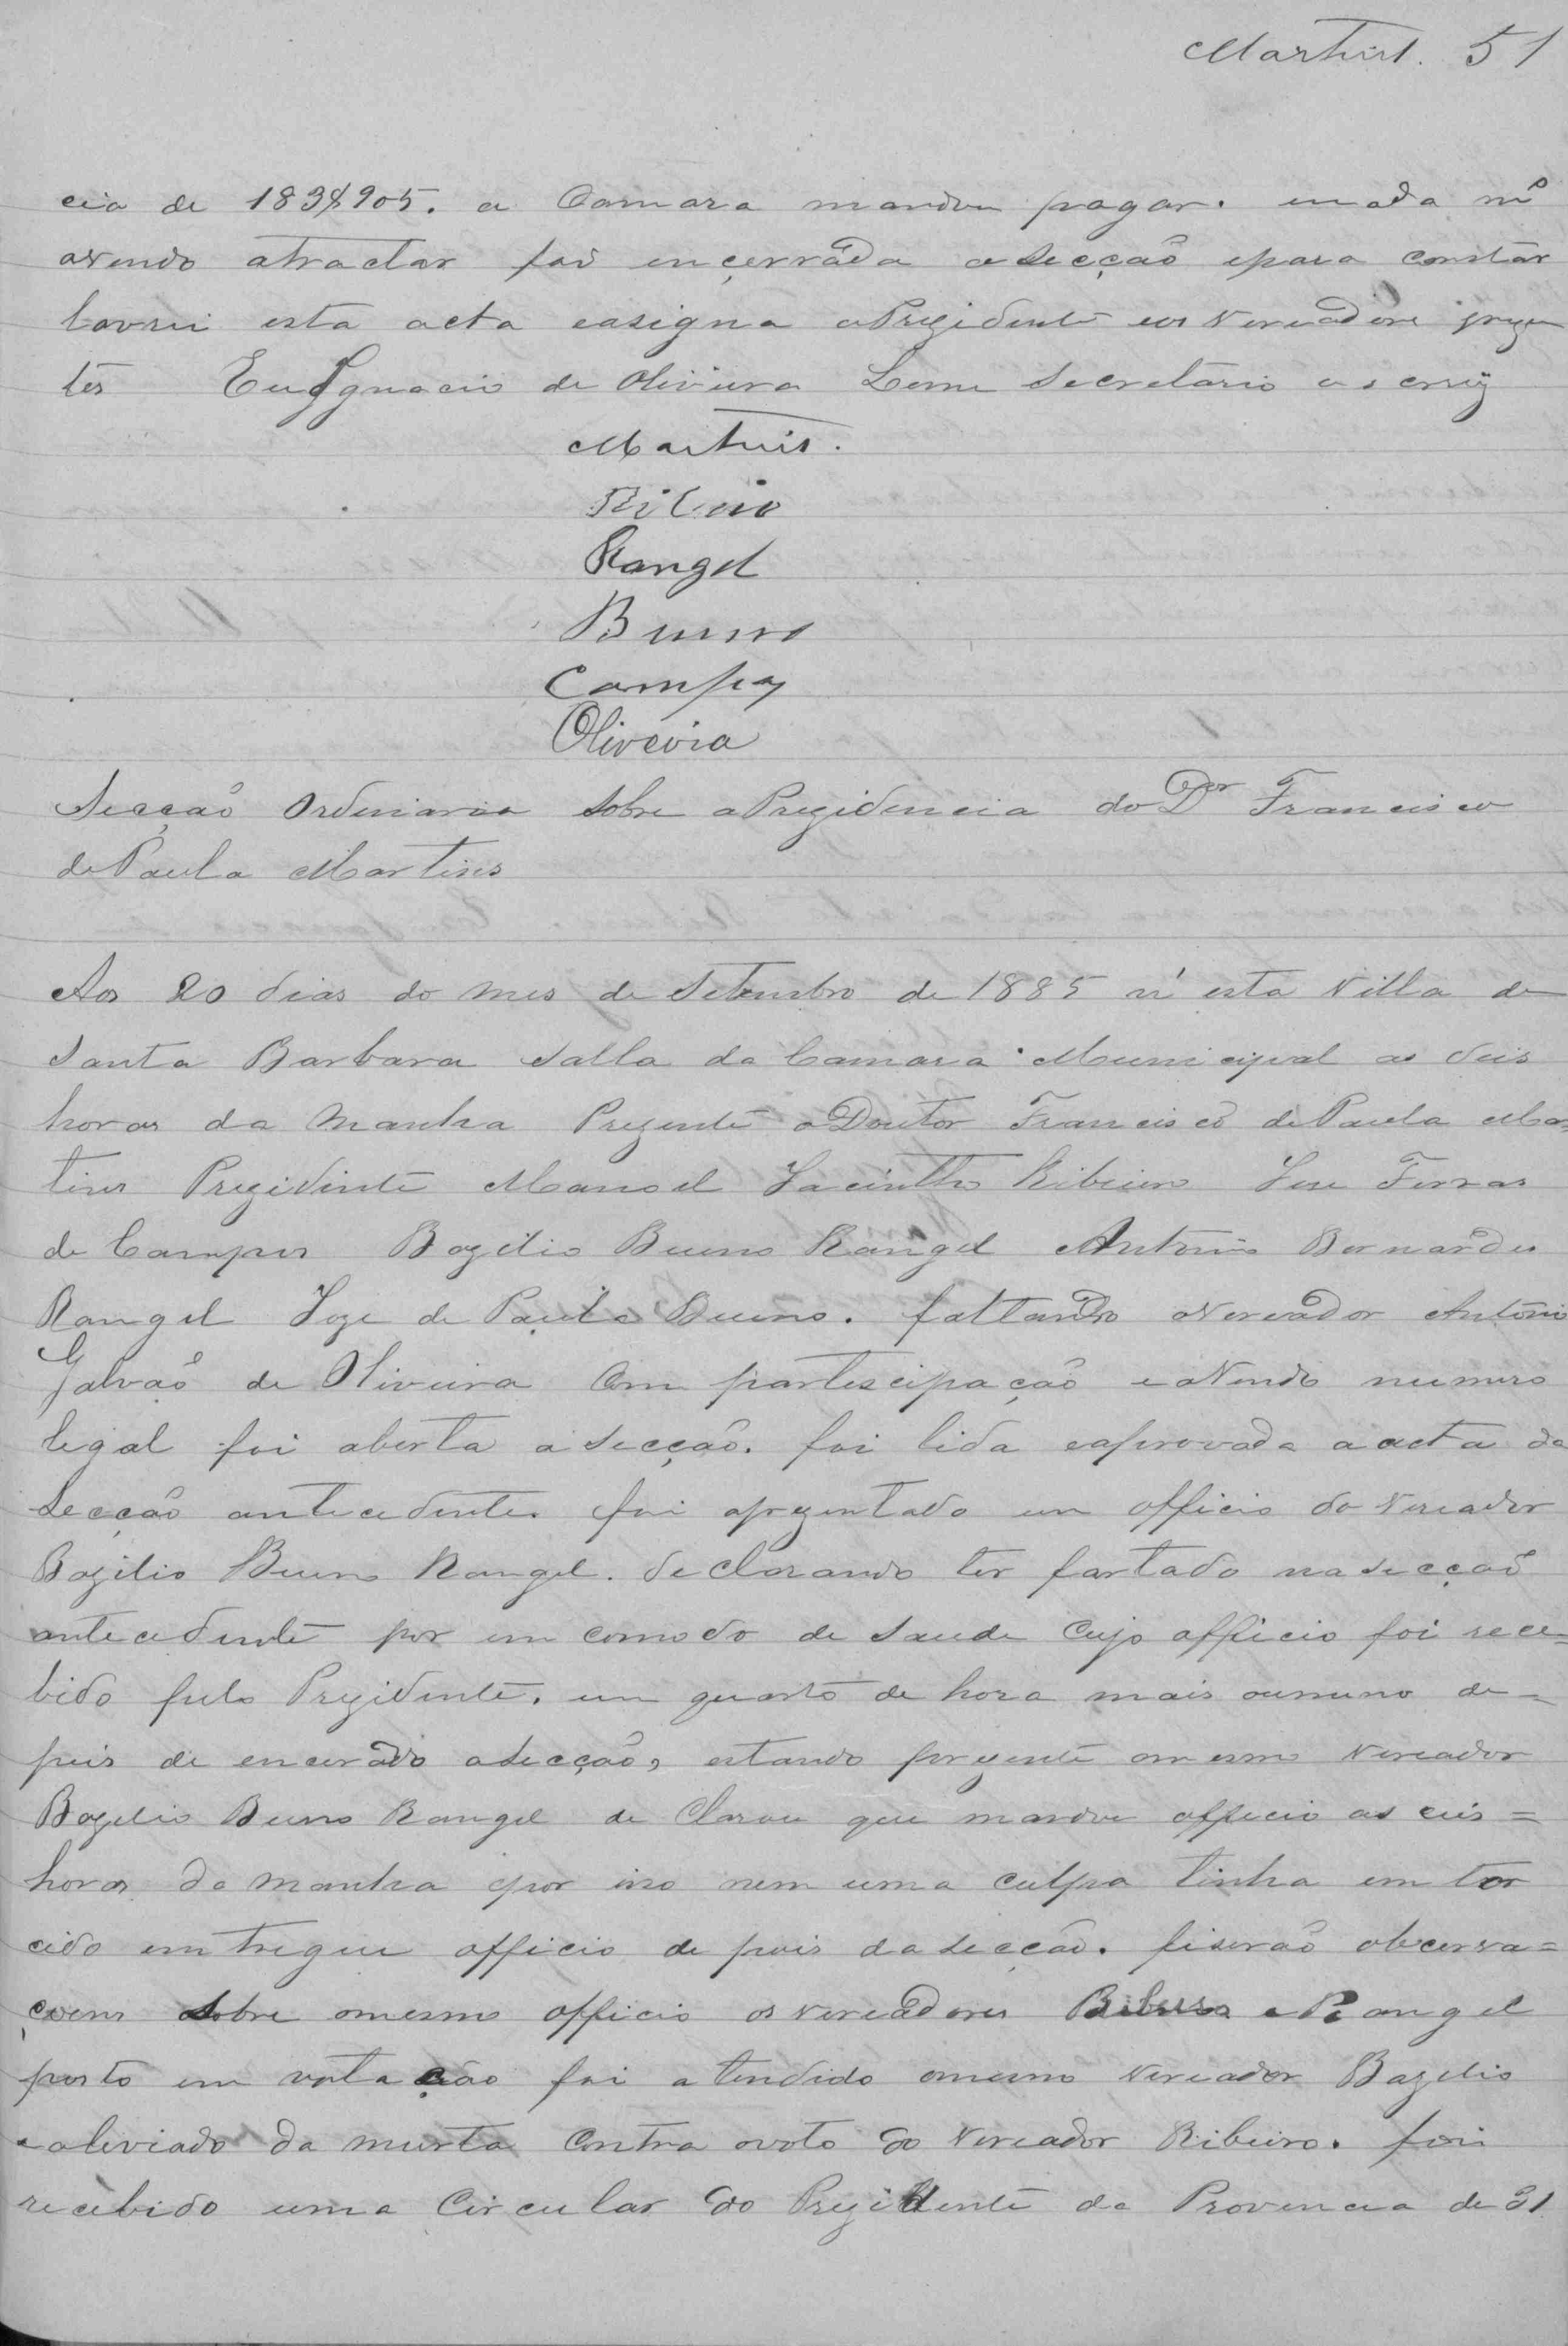 Martins. 51
cia de 183$905. a Camara mandou pagar. enada mº
avendo atractar foi ençerrada asecção epara constar
lavrei esta acta easigna oPrezidente eos Vereadore preze
tes Eu Ignacio de Oliveira Leme Secretario a
Martins.
Ribeiro
Rangel
Bueno
Campos
Oliveira
Secção Ordinaria sobre aPrezidencia do Dor Francisco
dePaula Martins
Aos 20 dias do mes de Setembro de 1885 n'esta Villa de
Santa Barbara Salla da Camara Municipal as deis
horas da manha Prezente o Doutor Francisco dePaula Mar=
tins Prezidente Manoel Jacintho Ribeiro Jose Ferras
de Campos Bazilio Bueno Rangel Antonio Bernardes
Rangel Joze de Paula Bueno. faltando oVereador Antonio
Galvaõ de Oliveira Com partescipação e aVendo numero
legal foi aberta asecção. foi lida eaprovada aacta da
Secção antecedente. foi aprezentado um officio do Vereador
Bazilio Bueno Rangel. declarando ter fartado nasecção
antecedente por em comodo de Saude Cujo officio foi rece=
bido pelo Prezidente. um quarto de hora mais oumeno de=
pois de encerado asecção, estando prezente omesmo Vereador
Bazilio Bueno Rangel de Clarou que mandou officio as ceis=
horas da manha epor iso nem uma culpa tinha em ter
cido emtregue officio de pois dasecção. fiserão obcerva=
çoens sobre omesmo officio osvereadores Ribeiro e Rangel
posto em votação foi atendido omesmo Vereador Bazilio
ealiviado da murta Contra ovoto do Vereador Ribeiro. foi
recebido uma Circular do Prezidente da Provencia de 31